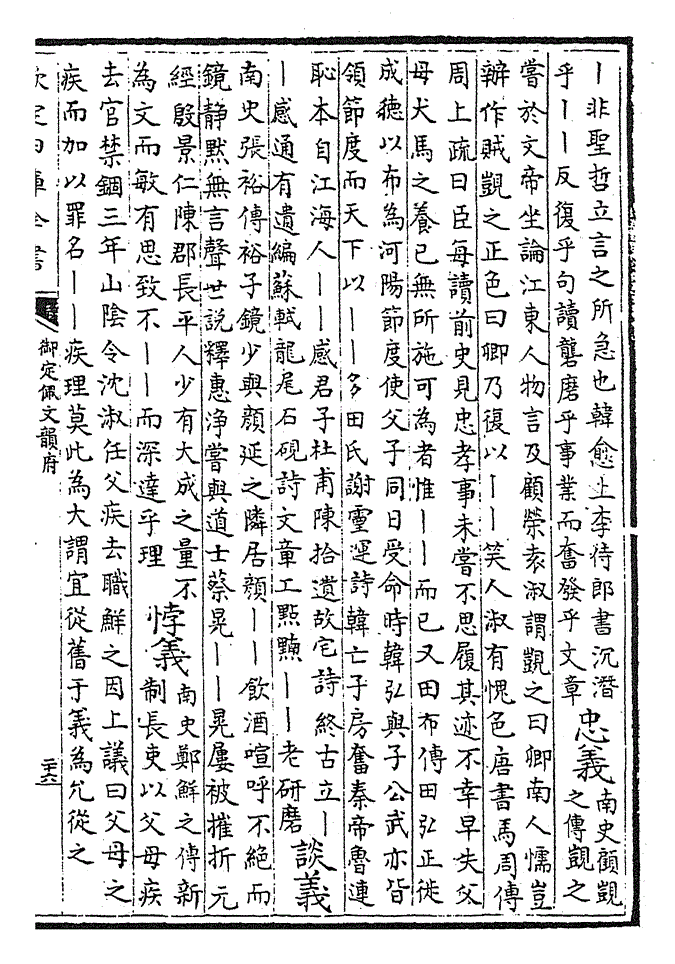 丨非聖哲立言之所急也韓愈上李侍郎書沉潛
乎丨丨反復乎句讀礱磨乎事業而奮發乎文章
忠義
南史顧覬
之傳覬之
嘗於文帝坐論江東人物言及顧榮袁淑謂覬之曰卿南人懦豈
辦作賊覬之正色曰卿乃復以丨丨笑人淑有愧色唐書馬周傳
周上疏曰臣每讀前史見忠孝事未嘗不思履其迹不幸早失父
母犬馬之養已無所施可為者惟丨丨而已又田布傳田弘正徙
成德以布為河陽節度使父子同日受命時韓弘與子公武亦皆
領節度而天下以丨丨多田氏謝靈運詩韓亡子房奮秦帝魯連
恥本自江海人丨丨感君子杜甫陳拾遺故宅詩終古立丨
丨感通有遺編蘇軾龍尾石硯詩文章工點黦丨丨老研磨
談義
南史張裕傳裕子鏡少與顏延之隣居顏丨丨飲酒喧呼不絕而
鏡靜默無言聲世說釋惠淨嘗與道士蔡晃丨丨晃屢被摧折元
經殷景仁陳郡長平人少有大成之量不
為文而敏有思致不丨丨而深達乎理
悖義
南史鄭鮮之傳新
制長吏以父母疾
去官禁錮三年山陰令沈淑任父疾去職鮮之因上議曰父母之
疾而加以罪名丨丨疾理莫此為大謂宜從舊于義為允從之
欽定四庫全書
御定佩文韻府
二十六